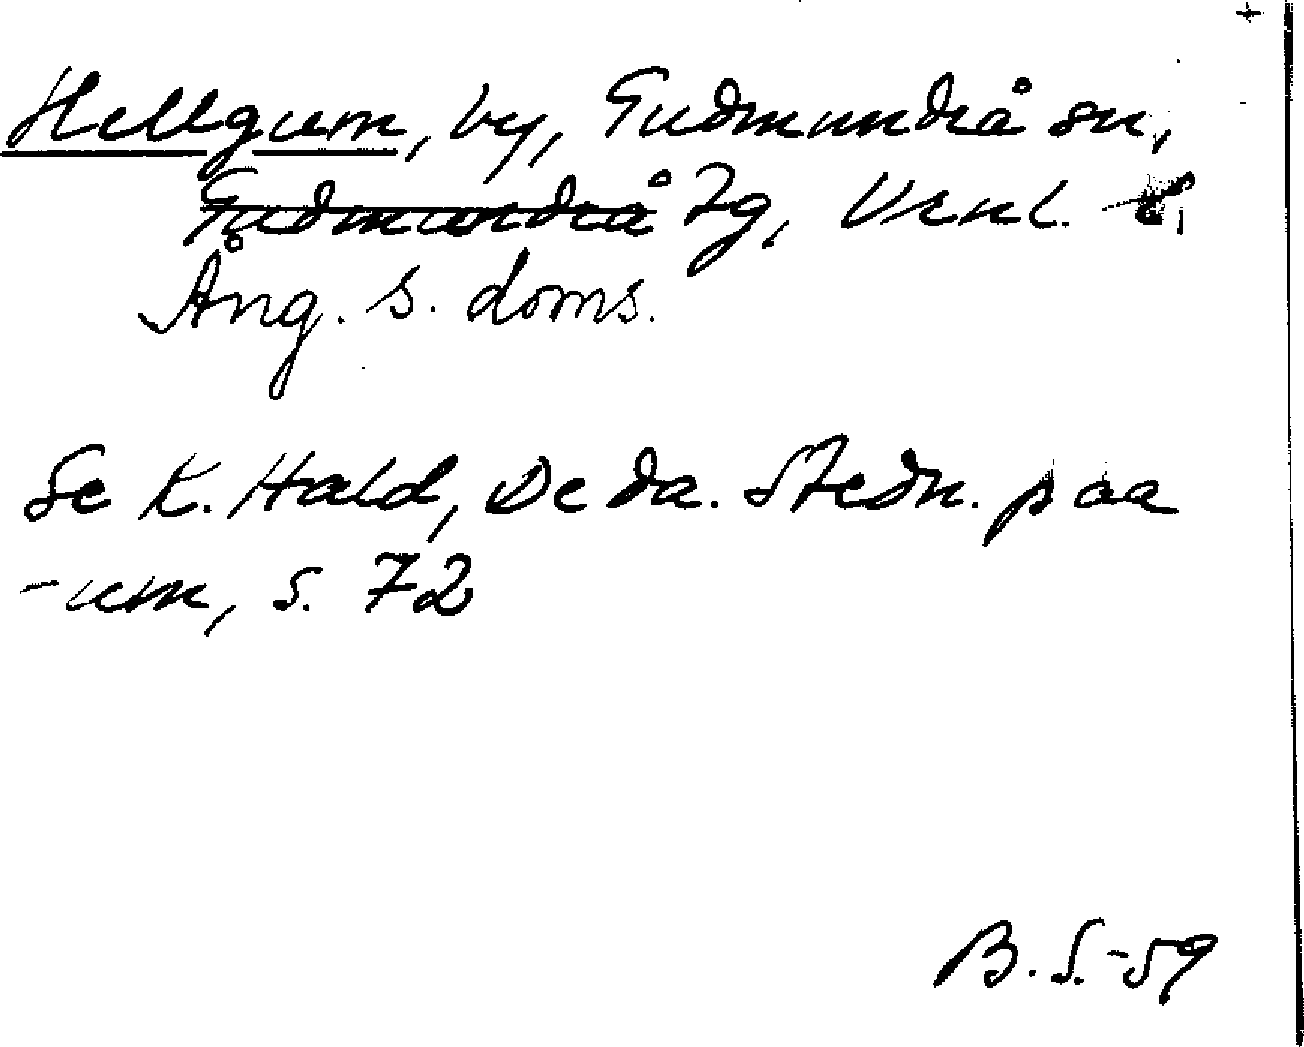 Hellgum, by, Gudmundrå sn,
Gudmundrå Tg, Vrnl.
Ång. s. doms.
Se K. Hald, De da. Stedn. paa
-um, s. 72
B. S. -59